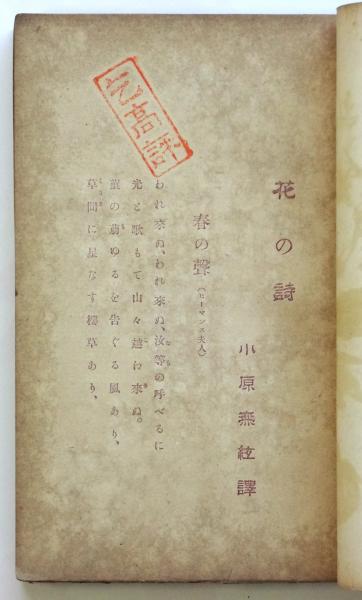 花の詩
小原無絃譯
春の聲（ヒーマンス夫人）
われ來ぬ、われ來ぬ、汝等の呼べるに
光と歌もて山々越ね來ぬ。
菫の萠ゆるを告ぐる風あり、
草間に星なす櫻草あり、
乞高評